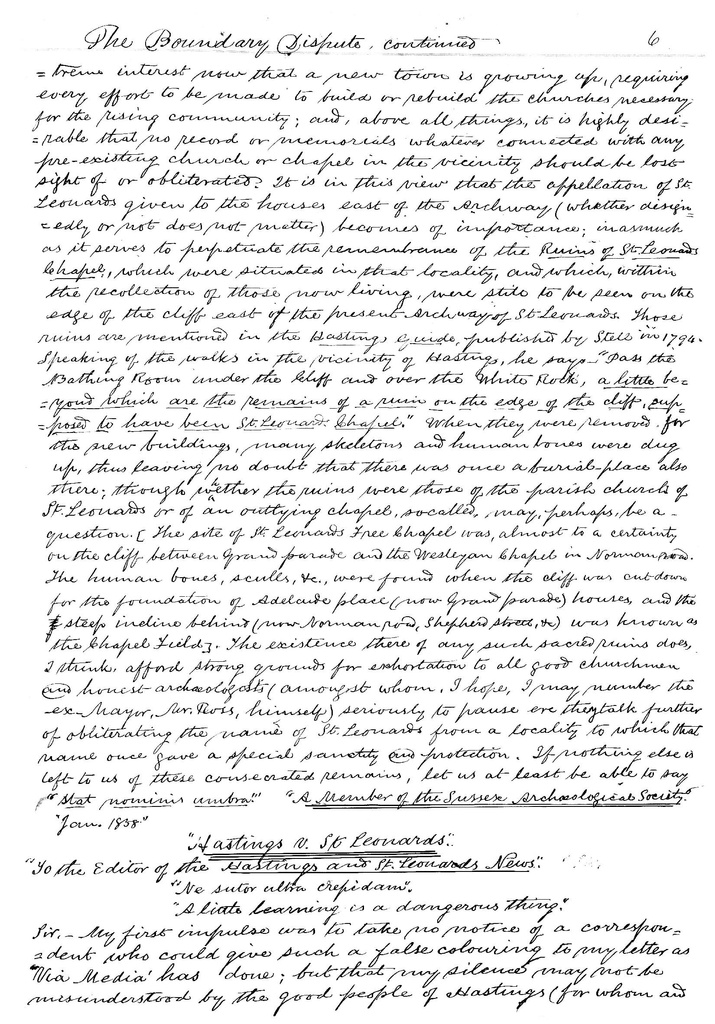 The Boundary Dispute, continued 6
=treme interest now that a new town is growing up, requiring
every effort to be made to build or rebuild the churches necessary
for the rising community; and, above all things, it is highly desi=
=rable that no record or memorials whatever connected with any
pre-existing church or chapel in the vicinity should be lost
sight of or obliterated? It is in this view that the appellation of St.
Leonards given to the houses east of the Archway (whether design=
=edly or not does not matter) becomes of importance; inasmuch
as it serves to perpetuate the remembrance of the Ruins of St. Leonards
Chapel, which were situated in that locality, and which, within
the recollection of those now living, were still to be seen on the
edge of the cliff east of the present Archway of St. Leonards. Those
ruins are mentioned in the Hastings Guide, published by Stell in 1794.
Speaking of the walks in the vicinity of Hastings, he says "Pass the
Bathing Room under the Cliff and over the White Rock, a little be=
=yond which are the remains of a ruin on the edge of the cliff, sup=
=posed to have been St. Leonard Chapel." When they were removed for
the new buildings, many skeletons and human bones were dug
up, thus leaving no doubt that there was once a burial-place also
there; though whether the ruins were those of the parish church of
St. Leonards or of an outlying chapel, so called, may, perhaps, be a
question. [The site of St. Leonards Free Chapel was, almost to a certainty
on the cliff between Grand parade and the Wesleyan Chapel in Norman road.
The human bones, sculls, &c., were found when the cliff was cut down
for the foundation of Adelaide place (now Grand parade) houses, and the
steep incline behind (now Norman road, Shepherd street, &c) was known as
the Chapel Field]. The existence there of any such sacred ruins does,
I think, afford strong grounds for exhortation to all good churchmen
and honest archaeologists (amongst whom, I hope, I may number the
ex-Mayor, Mr. Ross, himself) seriously to pause ere they talk further
of obliterating the name of St. Leonards from a locality to which that
name once gave a special sanctity and protection. If nothing else is
left to us of these consecrated remains, let us at least be able to say
"Stat nominis umbra!" "A Member of the Sussex Archaeological Society."
"Jan. 1858"
"Hastings v. St Leonards".
"To the Editor of the Hastings and St. Leonards News".
"Ne sutor ultra crepidam".
"A little learning is a dangerous thing".
Sir. – My first impulse was to take no notice of a correspon=
=dent who could give such a false colouring to my letter as
'Via Media' has done; but that my silence may not be
misunderstood by the good people of Hastings (for whom and